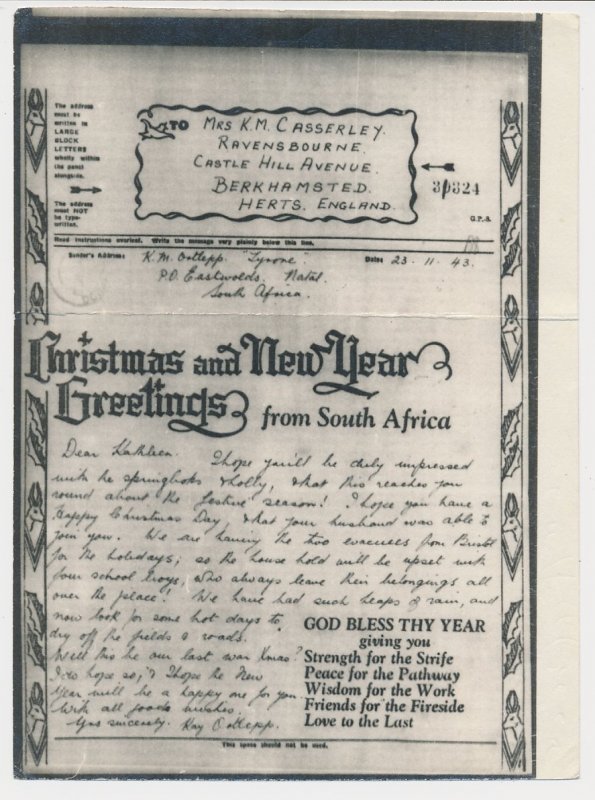 The address
must be
written in
LARGE
BLOCK
LETTERS
wholly within
the panel
alongside.
The address
must NOT
be type-
written.
TO MRS K.M. CASSERLEY.
RAVENSBOURNE.
CASTLE HILL AVENUE.
BERKHAMSTED.
HERTS. ENGLAND.
30324
G.P.-S.
Read instructions overleaf. Write the message very plainly below this line.
Sender's Address: K.M. Oottepp. "Tyrone".
Date: 23. 11. 43.
P.O. Eastwolds. Natal.
South Africa.
Christmas and New Year
Greetings from South Africa
Dear Kathleen. I hope you'll be duly impressed
with the springboks & holly, & that this reaches you
round about the festive season! I hope you have a
Happy Christmas Day, & that your husband was able to
join you. We are having the two evacuees from Bristol
for the holidays; so the house hold will be upset with
four school boys, who always leave their belongings all
over the place! We have had such heaps of rain, and
now look for some hot days to
dry off the fields & roads.
Will this be our last war Xmas?
I do hope so, & I hope the New
Year will be a happy one for you.
With all good wishes.
Yrs sincerely. Kay Oottepp.
GOD BLESS THY YEAR
giving you
Strength for the Strife
Peace for the Pathway
Wisdom for the Work
Friends for the Fireside
Love to the Last
This space should not be used.